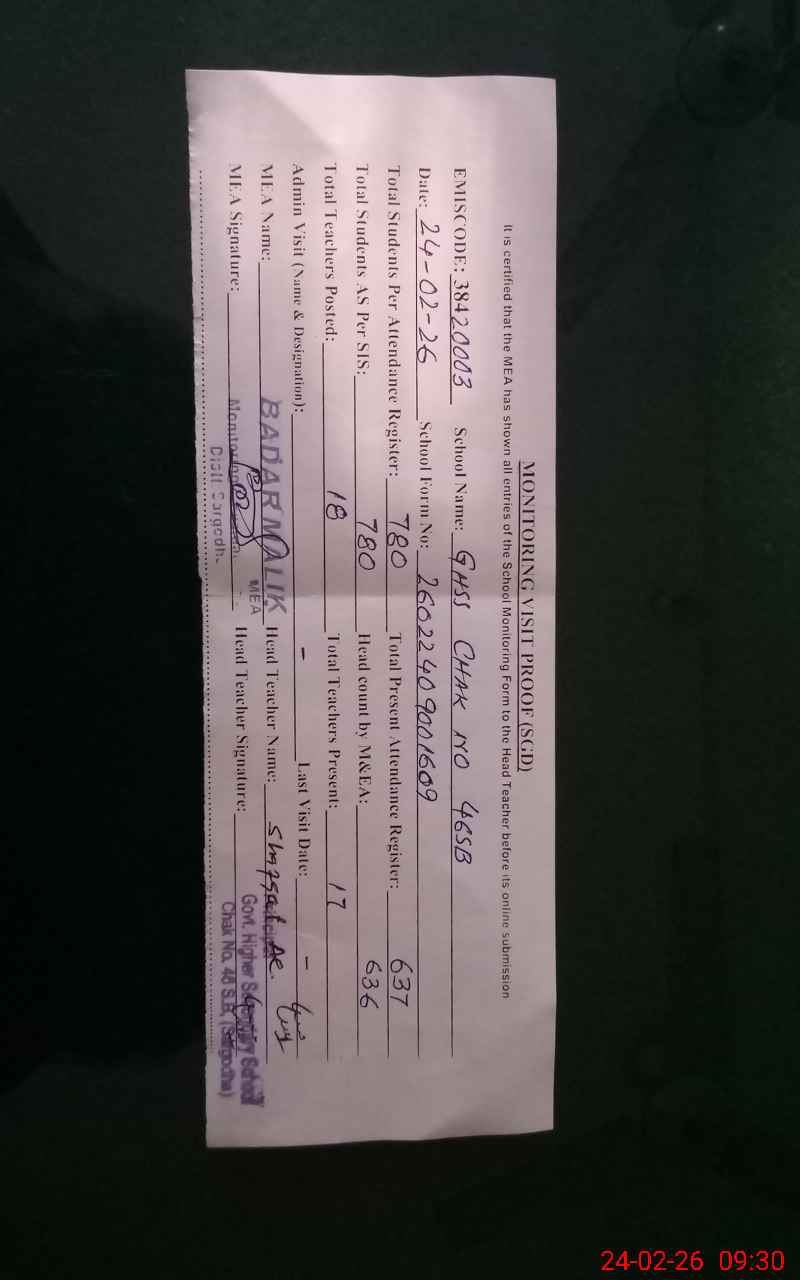 MONITORING VISIT PROOF (SGD)
It is certified that the MEA has shown all entries of the School Monitoring Form to the Head Teacher before its online submission
EMISCODE: 38420003 School Name: GHSS CHAK NO 46SB
Date: 24-02-26 School Form No: 26022409001609
Total Students Per Attendance Register: 780 Total Present Attendance Register: 637
Total Students AS Per SIS: 780 Head count by M&EA: 636
Total Teachers Posted: 18 Total Teachers Present: 17
Admin Visit (Name & Designation): - Last Visit Date: -
MEA Name: BADAR MALIK MEA Head Teacher Name:
MEA Signature: Monitoring Head Teacher Signature:
Distt. Sargodh
Principal
Govt. Higher Secondary School
Chak No. 46 S.B, (Sargodha)
24-02-26 09:30